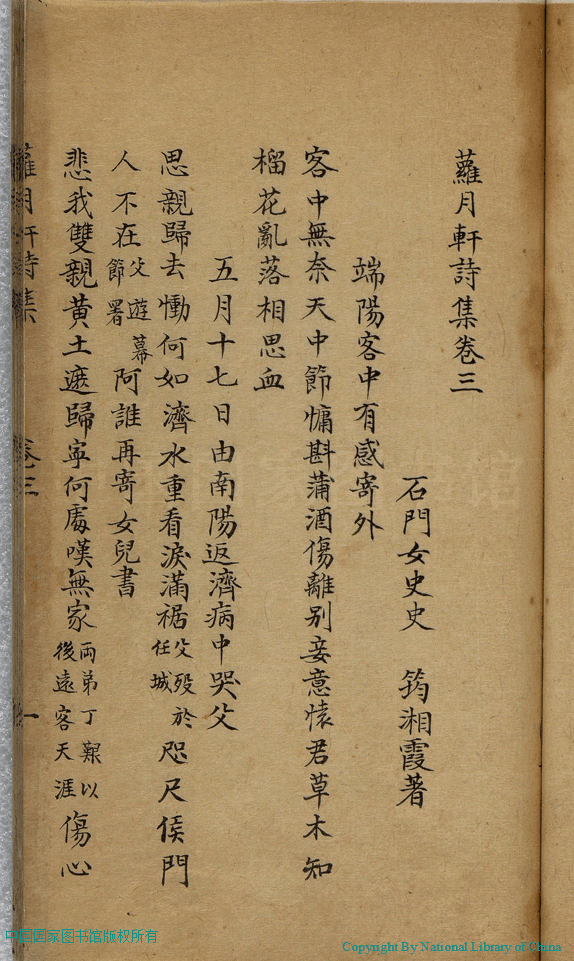 蘿月軒詩集卷三
石門女史史　筠湘霞著
端陽客中有感寄外
客中無奈天中節慵斟蒲酒傷離别妾意懐君草木知
榴花亂落相思血
五月十七日由南陽返濟病中哭父
思親歸去慟何如濟水重看淚滿裾父殁於任城咫尺侯門
人不在父遊幕節署阿誰再寄女兒書
悲我雙親黄土遮歸寧何處嘆無家兩弟丁艱以後遠客天涯傷心
蘿月軒詩集　卷三　一
中国国家图书馆版权所有
Copyright By National Library of China